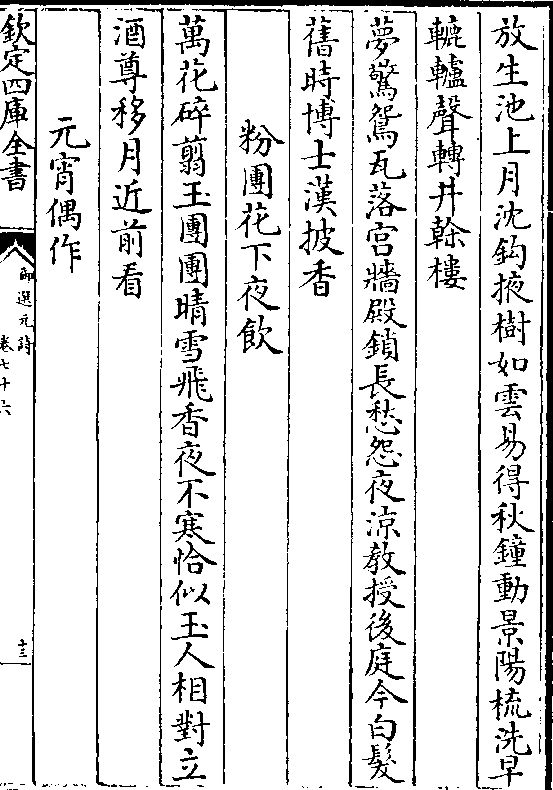 放生池上月沈鈎掖樹如雲易得秋鐘動景陽梳洗早
轆轤聲轉井榦樓
夢驚鴛瓦落宫牆殿鎖長愁怨夜涼教授後庭今白髮
舊時博士漢披香
粉團花下夜飲
萬花碎翦玉團團晴雪飛香夜不寒恰似玉人相對立
酒尊移月近前看
元宵偶作
欽定四庫全書
御選元詩
卷七十六
十三